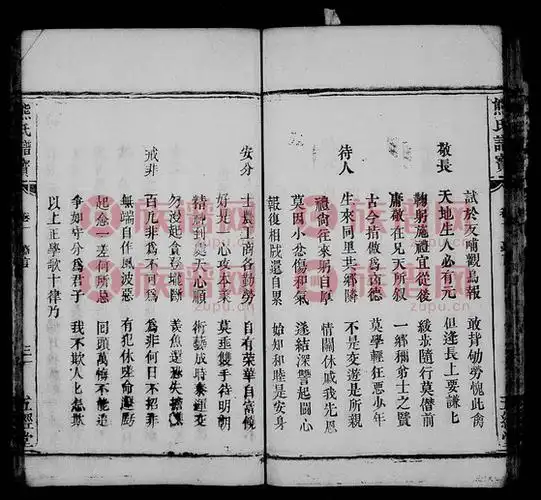 熊氏譜寶
試於反哺觀烏報 敢持劬勞愧此禽
敬長
天地生人必有元 但逢長上要謙
鞠躬施禮宜從後 緩步隨行莫僭前
庸敬在兄天所叙 一鄉稱弟士之賢
古今指傲為凶德 莫學輕狂惡少年
待人
生來同里共鄉隣 不是交遊是所親
禮尚往來躬自厚 情關休戚我先恩
莫因小忿傷和氣 遂結深讐起鬪心
報復相戕還自累 始知和睦是安身
安分
士農工商各勤勞 自有榮華自富饒
好是一心安本業 莫垂雙手待明朝
天心順 術藝成時
勿沒起貪登壟斷 羨魚
戒非
百凡非為不可為 為非何日不招非
無端自作風波惡 有犯休嗟命運
起念一差何所忌 回頭萬悔不能追
爭如守分為君子 我不欺人
以上正學歌十律乃
熊氏譜寶
卷一
五經堂
族譜網
zupu.cn